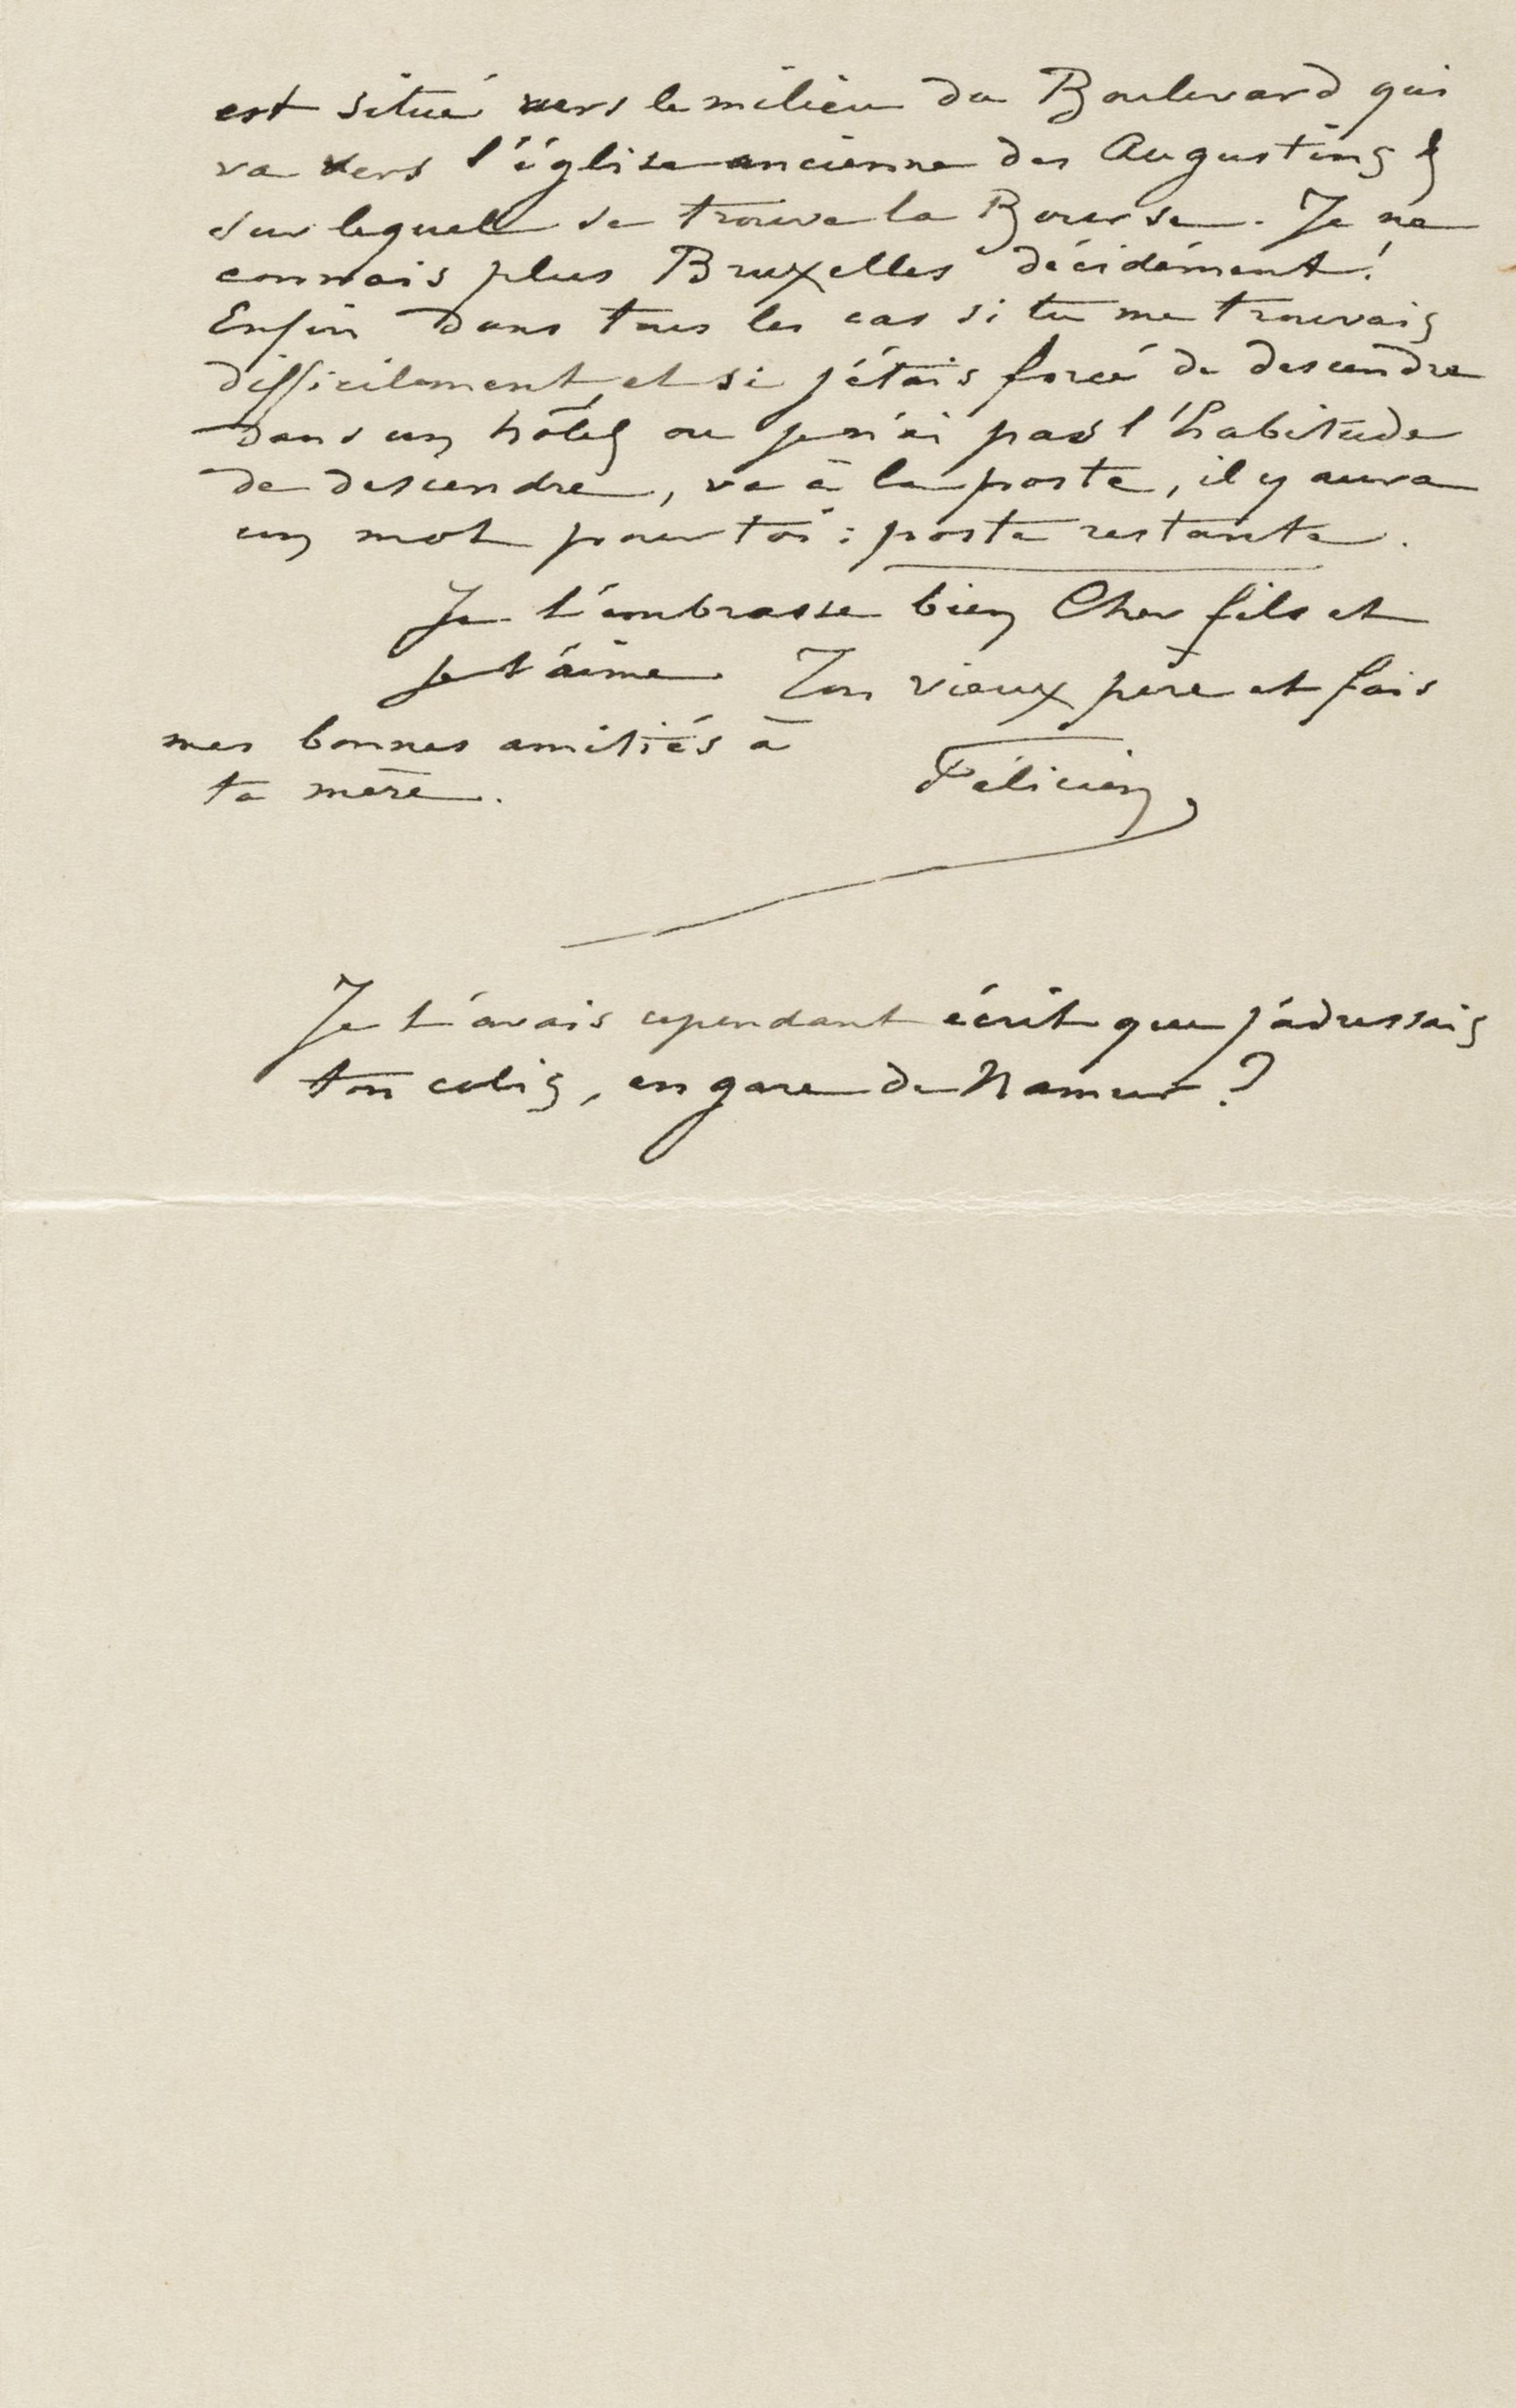 est situé vers le milieu du Boulevard qui
va vers l'église ancienne des Augustins &
sur lequel se trouve la Bourse. Je ne
connais plus Bruxelles décidément!
Enfin dans tous les cas si tu me trouvais
difficilement, et si j'étais forcé de descendre
dans un hôtel ou je n'ai pas l'habitude
de descendre, va à la poste, il y aura
un mot pour toi : poste restante.
Je t'embrasse bien Cher fils et
je t'aime. Ton vieux père et fais
mes bonnes amitiés à
ta mère.
Félicien
Je t'avais cependant écrit que j'adressais
ton colis, en gare de Namur ?